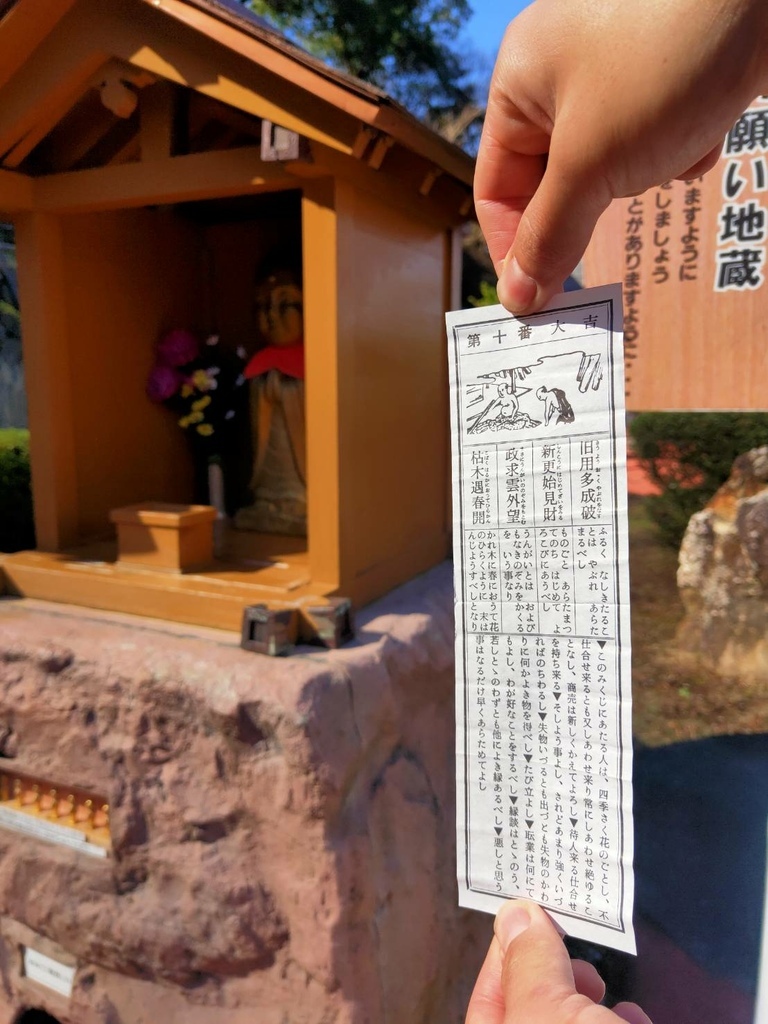 第十番大吉
旧用多成破
新更始見財
政求雲外望
枯木遇春開
ふるく なしきたるこ
とは やぶれ あらた
まるべし
ものごと あらたまつ
てのち はじめて よ
ろこびにあうべし
うんがいとは および
もなきのぞみをかくる
を いう事なり
かれ木に春におうて花
のひらくように 末は
んじようすべしとなり
▼このみくじにあたる人は、四季さく花のごとし、不
仕合せ来るとも又しあわせ来り常にしあわせ絶ゆるこ
となし、商売は新しくかえてよろし▼待人来る仕合せ
を持ち来る▼そしよう事よし、されどあまり強くいづ
ればのちわるし▼失物いづるとも出づとも失物のかわ
りに何かよき物を得べし▼たび立よし▼耘業は何にて
もよし、わが好なことをするべし▼縁談はとゝのう、
若しとゝのわずとも他によき縁あるべし▼悪しと思う
事はなるだけ早くあらためてよし
願い地蔵
いますように
をしましょう
とがありますように…